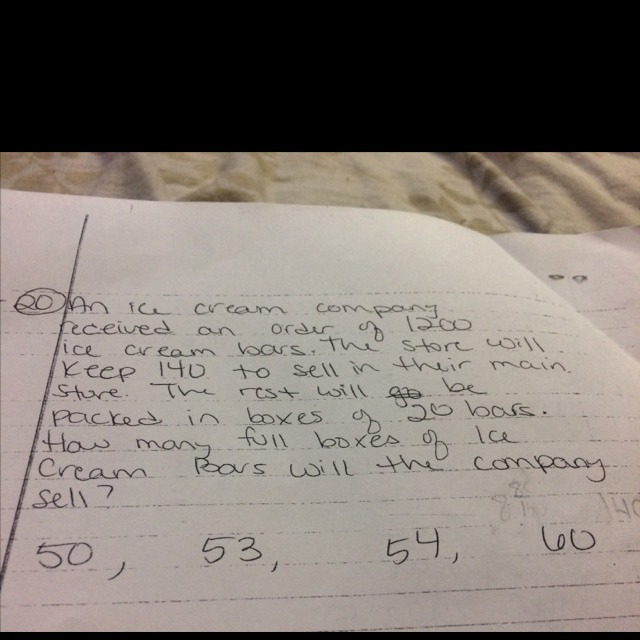 20) An ice cream company
received an order of 1200
ice cream bars. The store will
keep 140 to sell in their main
store. The rest will be
packed in boxes of 20 bars.
How many full boxes of Ice
Cream Bars will the company
sell?
50, 53, 54, 60